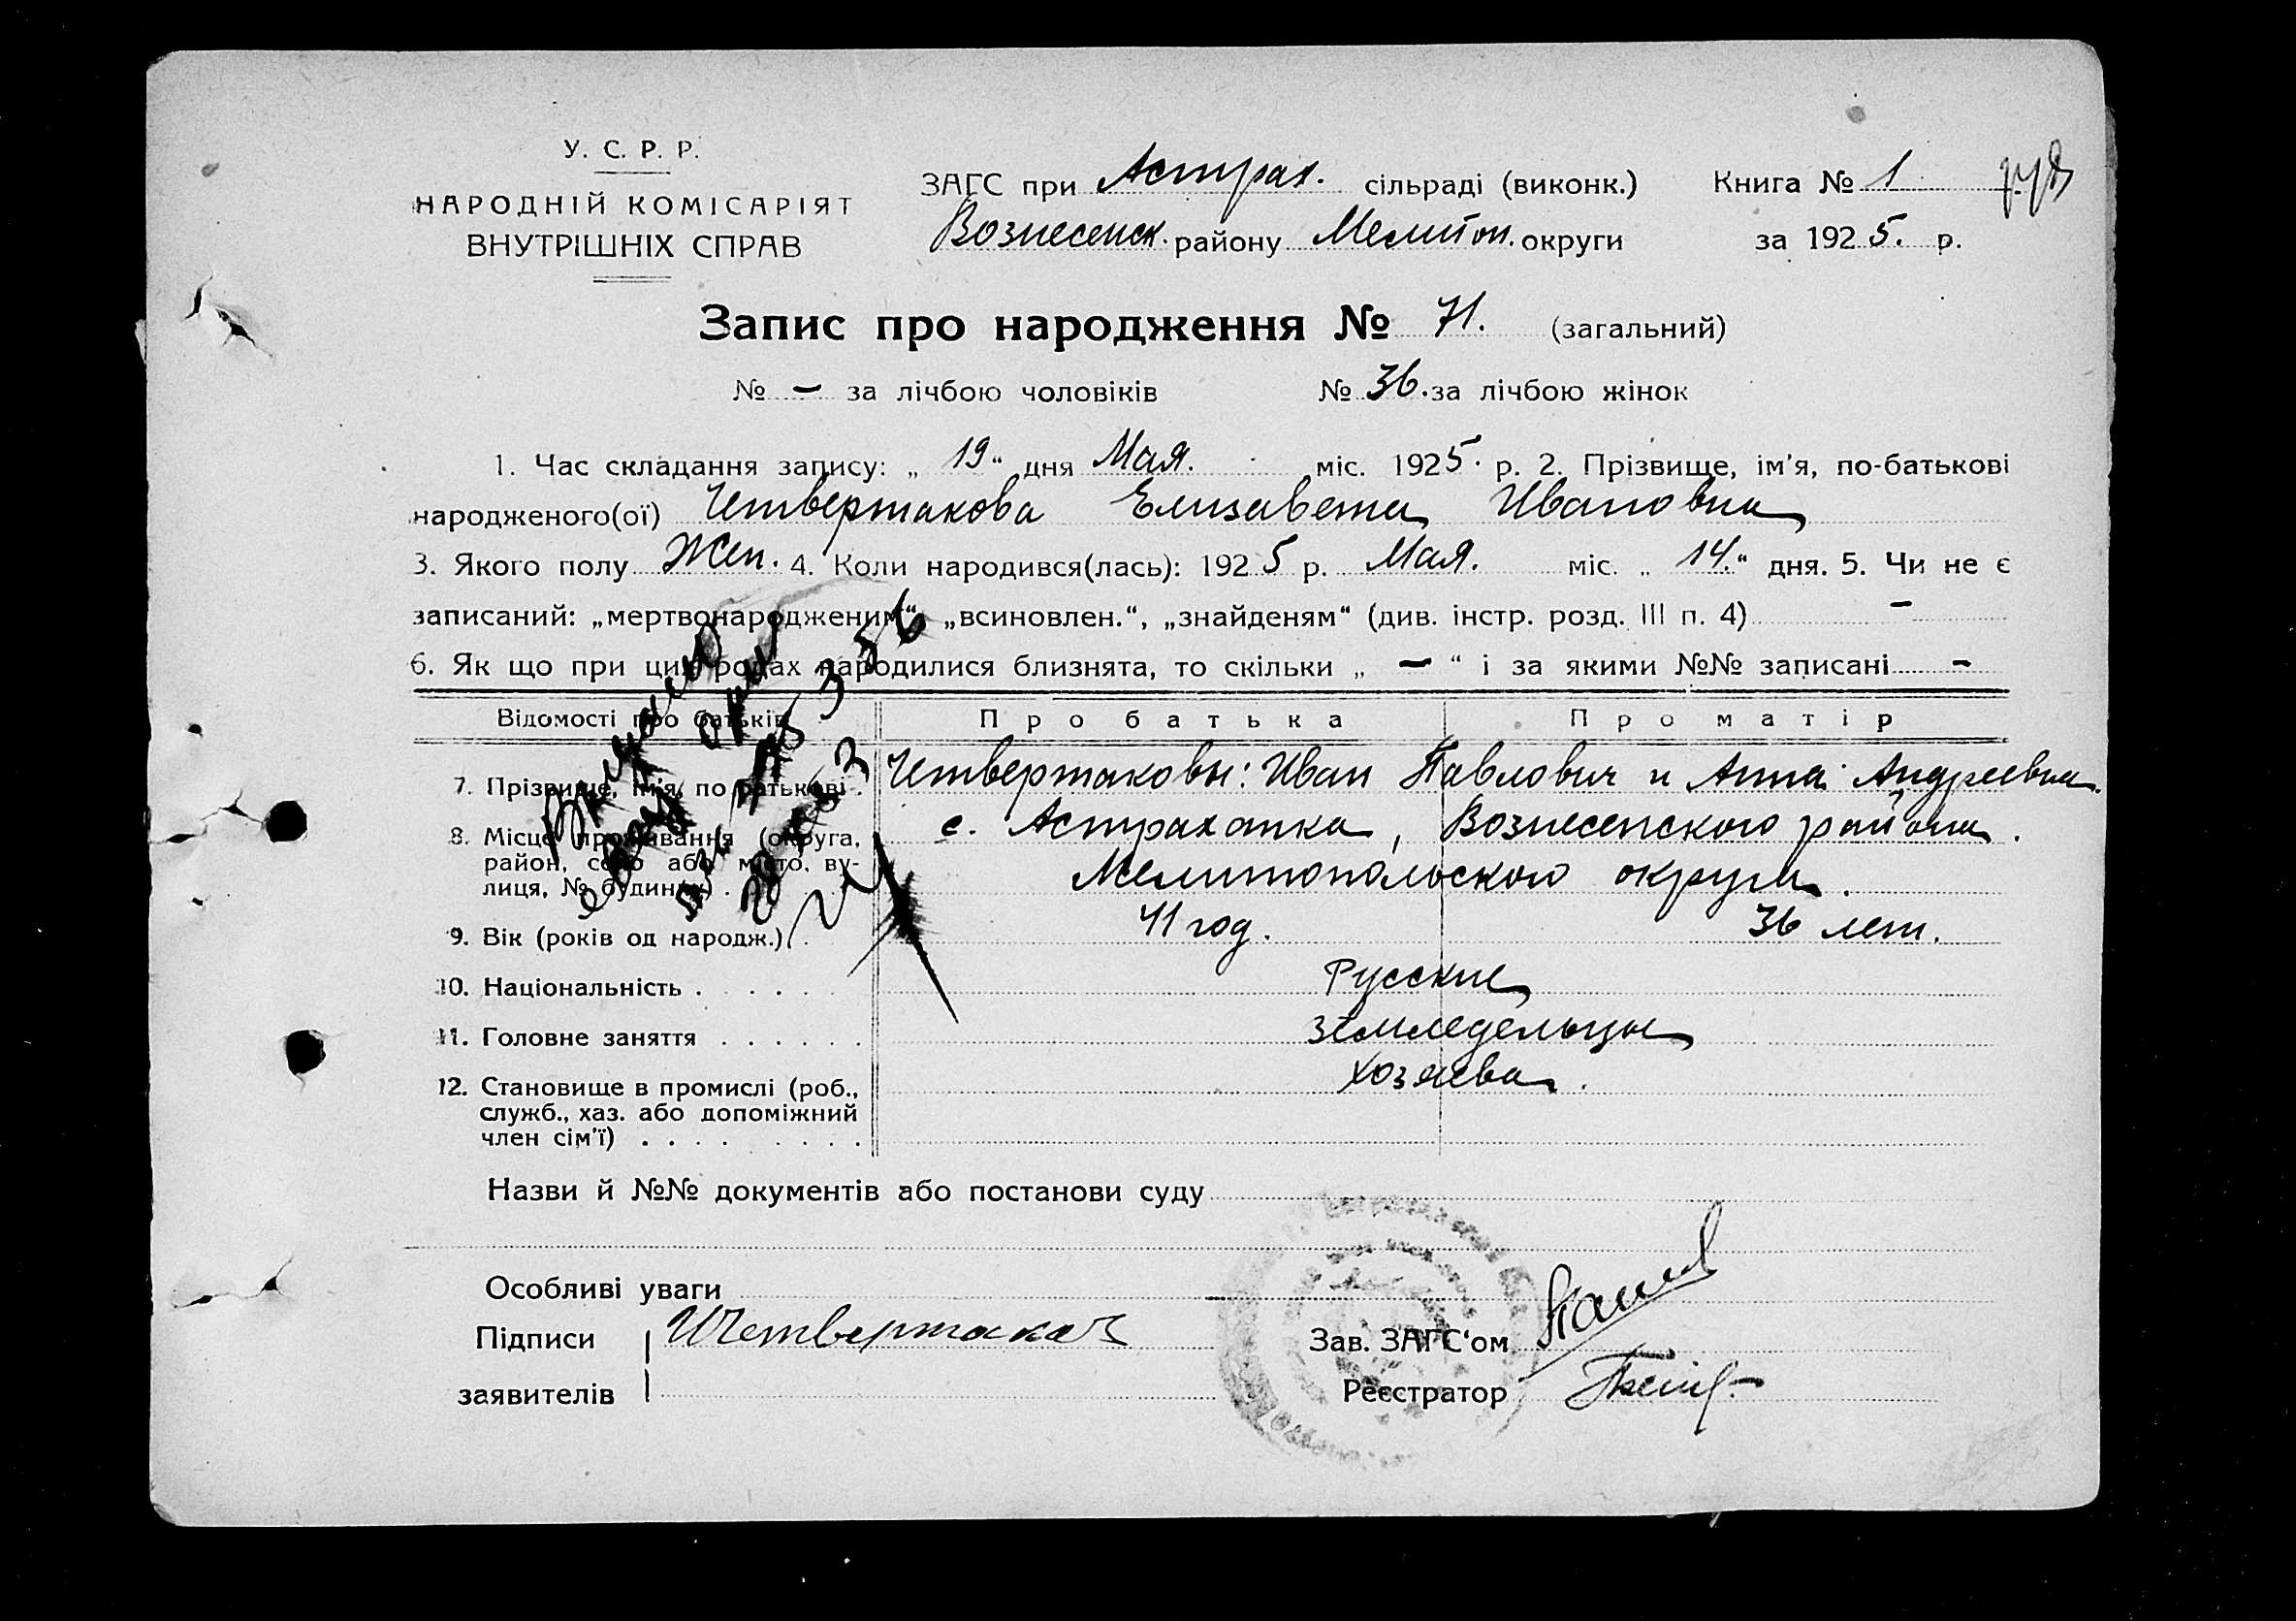 У. С. Р. Р.
НАРОДНІЙ КОМІСАРІЯТ
ВНУТРІШНІХ СПРАВ
ЗАГС при Астрах. сільраді (виконк.) Книга № 1
Вознесенск. району Мелитоп. округи за 1925. р.
Запис про народження № 71. (загальний)
№ – за лічбою чоловіків № 36. за лічбою жінок
1. Час складання запису: „ 19 “ дня Мая. міс. 1925. р. 2. Прізвище, ім'я, по-батькові
народженого(ої) Четвертакова Елизавета Ивановна
3. Якого полу Жен. 4. Коли народився(лась): 1925 р. Мая. міс. „ 14. “ дня. 5. Чи не є
записаний: „мертвонародженим“, „всиновлен.“, „знайденям“ (див. інстр. розд. III п. 4) –
6. Як що при цих родах народилися близнята, то скільки „ – “ і за якими №№ записані –
Відомості про батьків Про батька Про матір
7. Прізвище, ім'я, по батькові . Четвертаковы: Иван Павлович и Анна Андреевна.
8. Місце проживання (округа, район, село або місто, вулиця, № будинку) . с. Астраханка, Вознесенского района.
Мелитопольского округа.
9. Вік (років од народж.) . 41 год. 36 лет.
10. Національність . . . . . Русские
11. Головне заняття . . . . . . Земледельцы
12. Становище в промислі (роб., Хозяева.
служб., хаз. або допоміжний
член сім'ї) . . . . . . . .
Назви й №№ документів або постанови суду
Особливі уваги
Підписи ИЧетвертаков Зав. ЗАГС'ом
заявителів Реєстратор